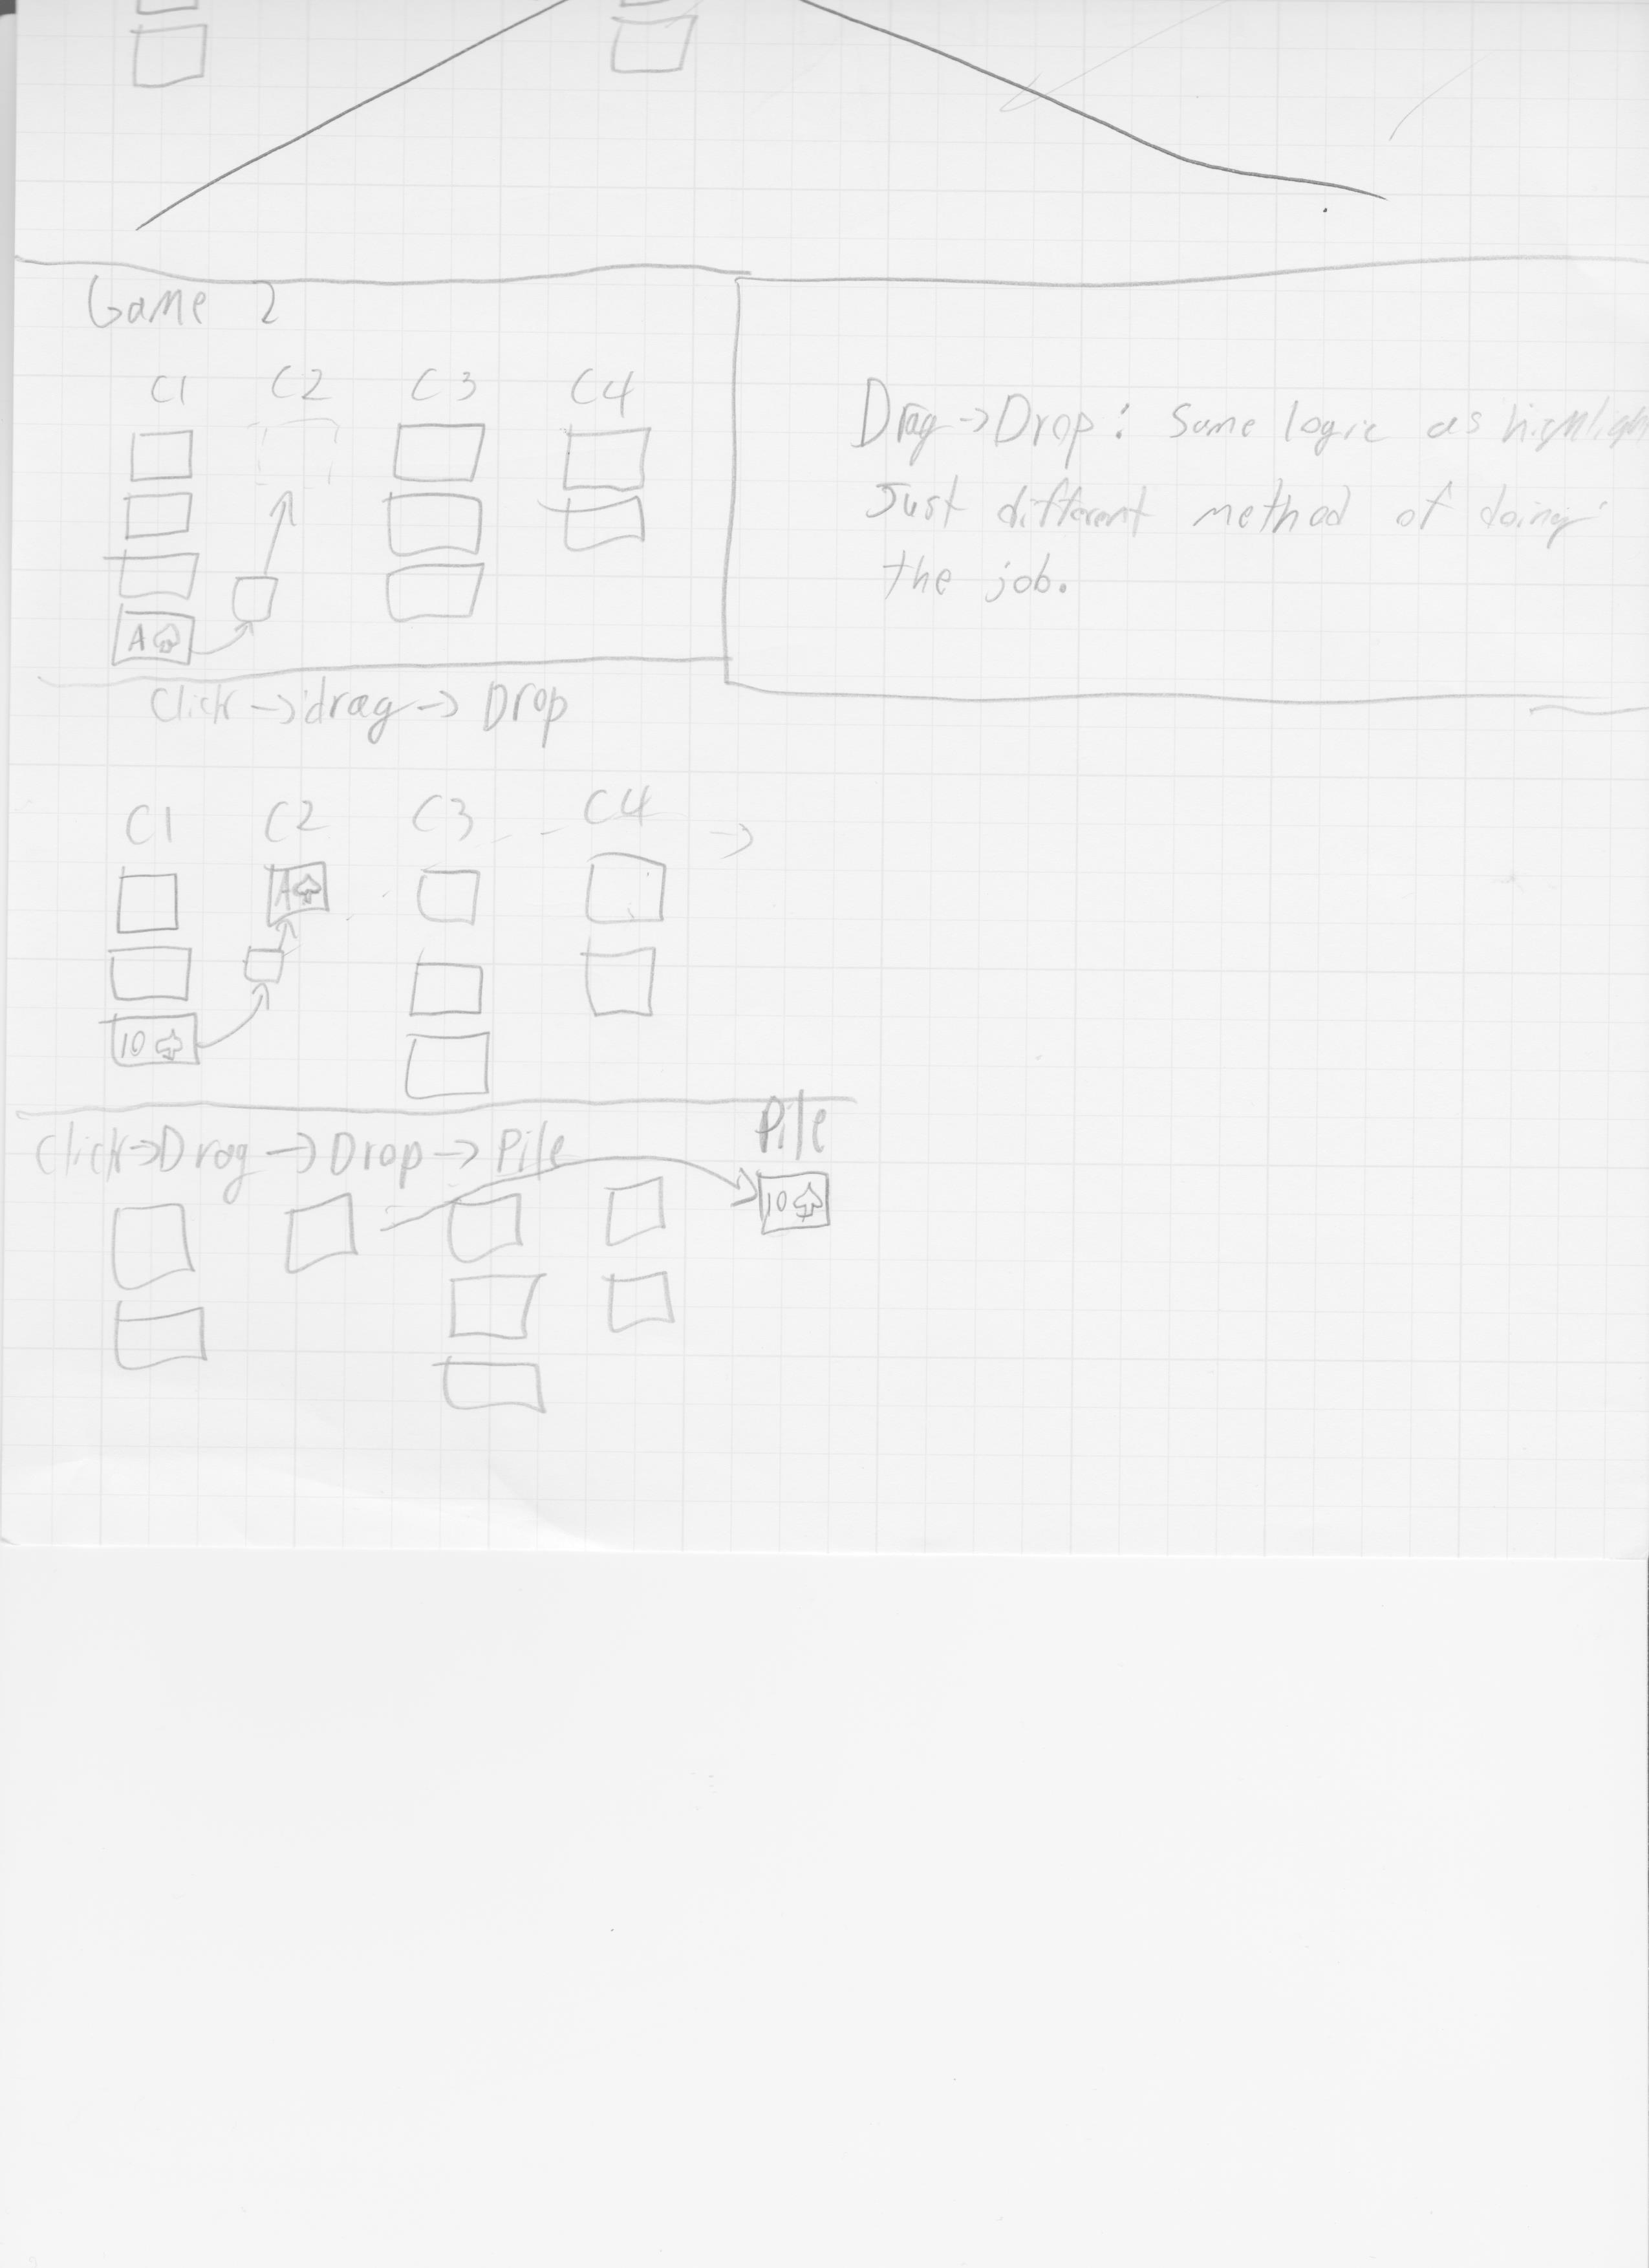 Game 2
C1 C2 C3 C4
A♤
Drag → Drop: Same logic as highligh
Just different method of doing
the job.
Click → drag → Drop
C1 C2 C3 C4 →
A♤
10 ♤
Click → Drag → Drop → Pile
Pile
10 ♤